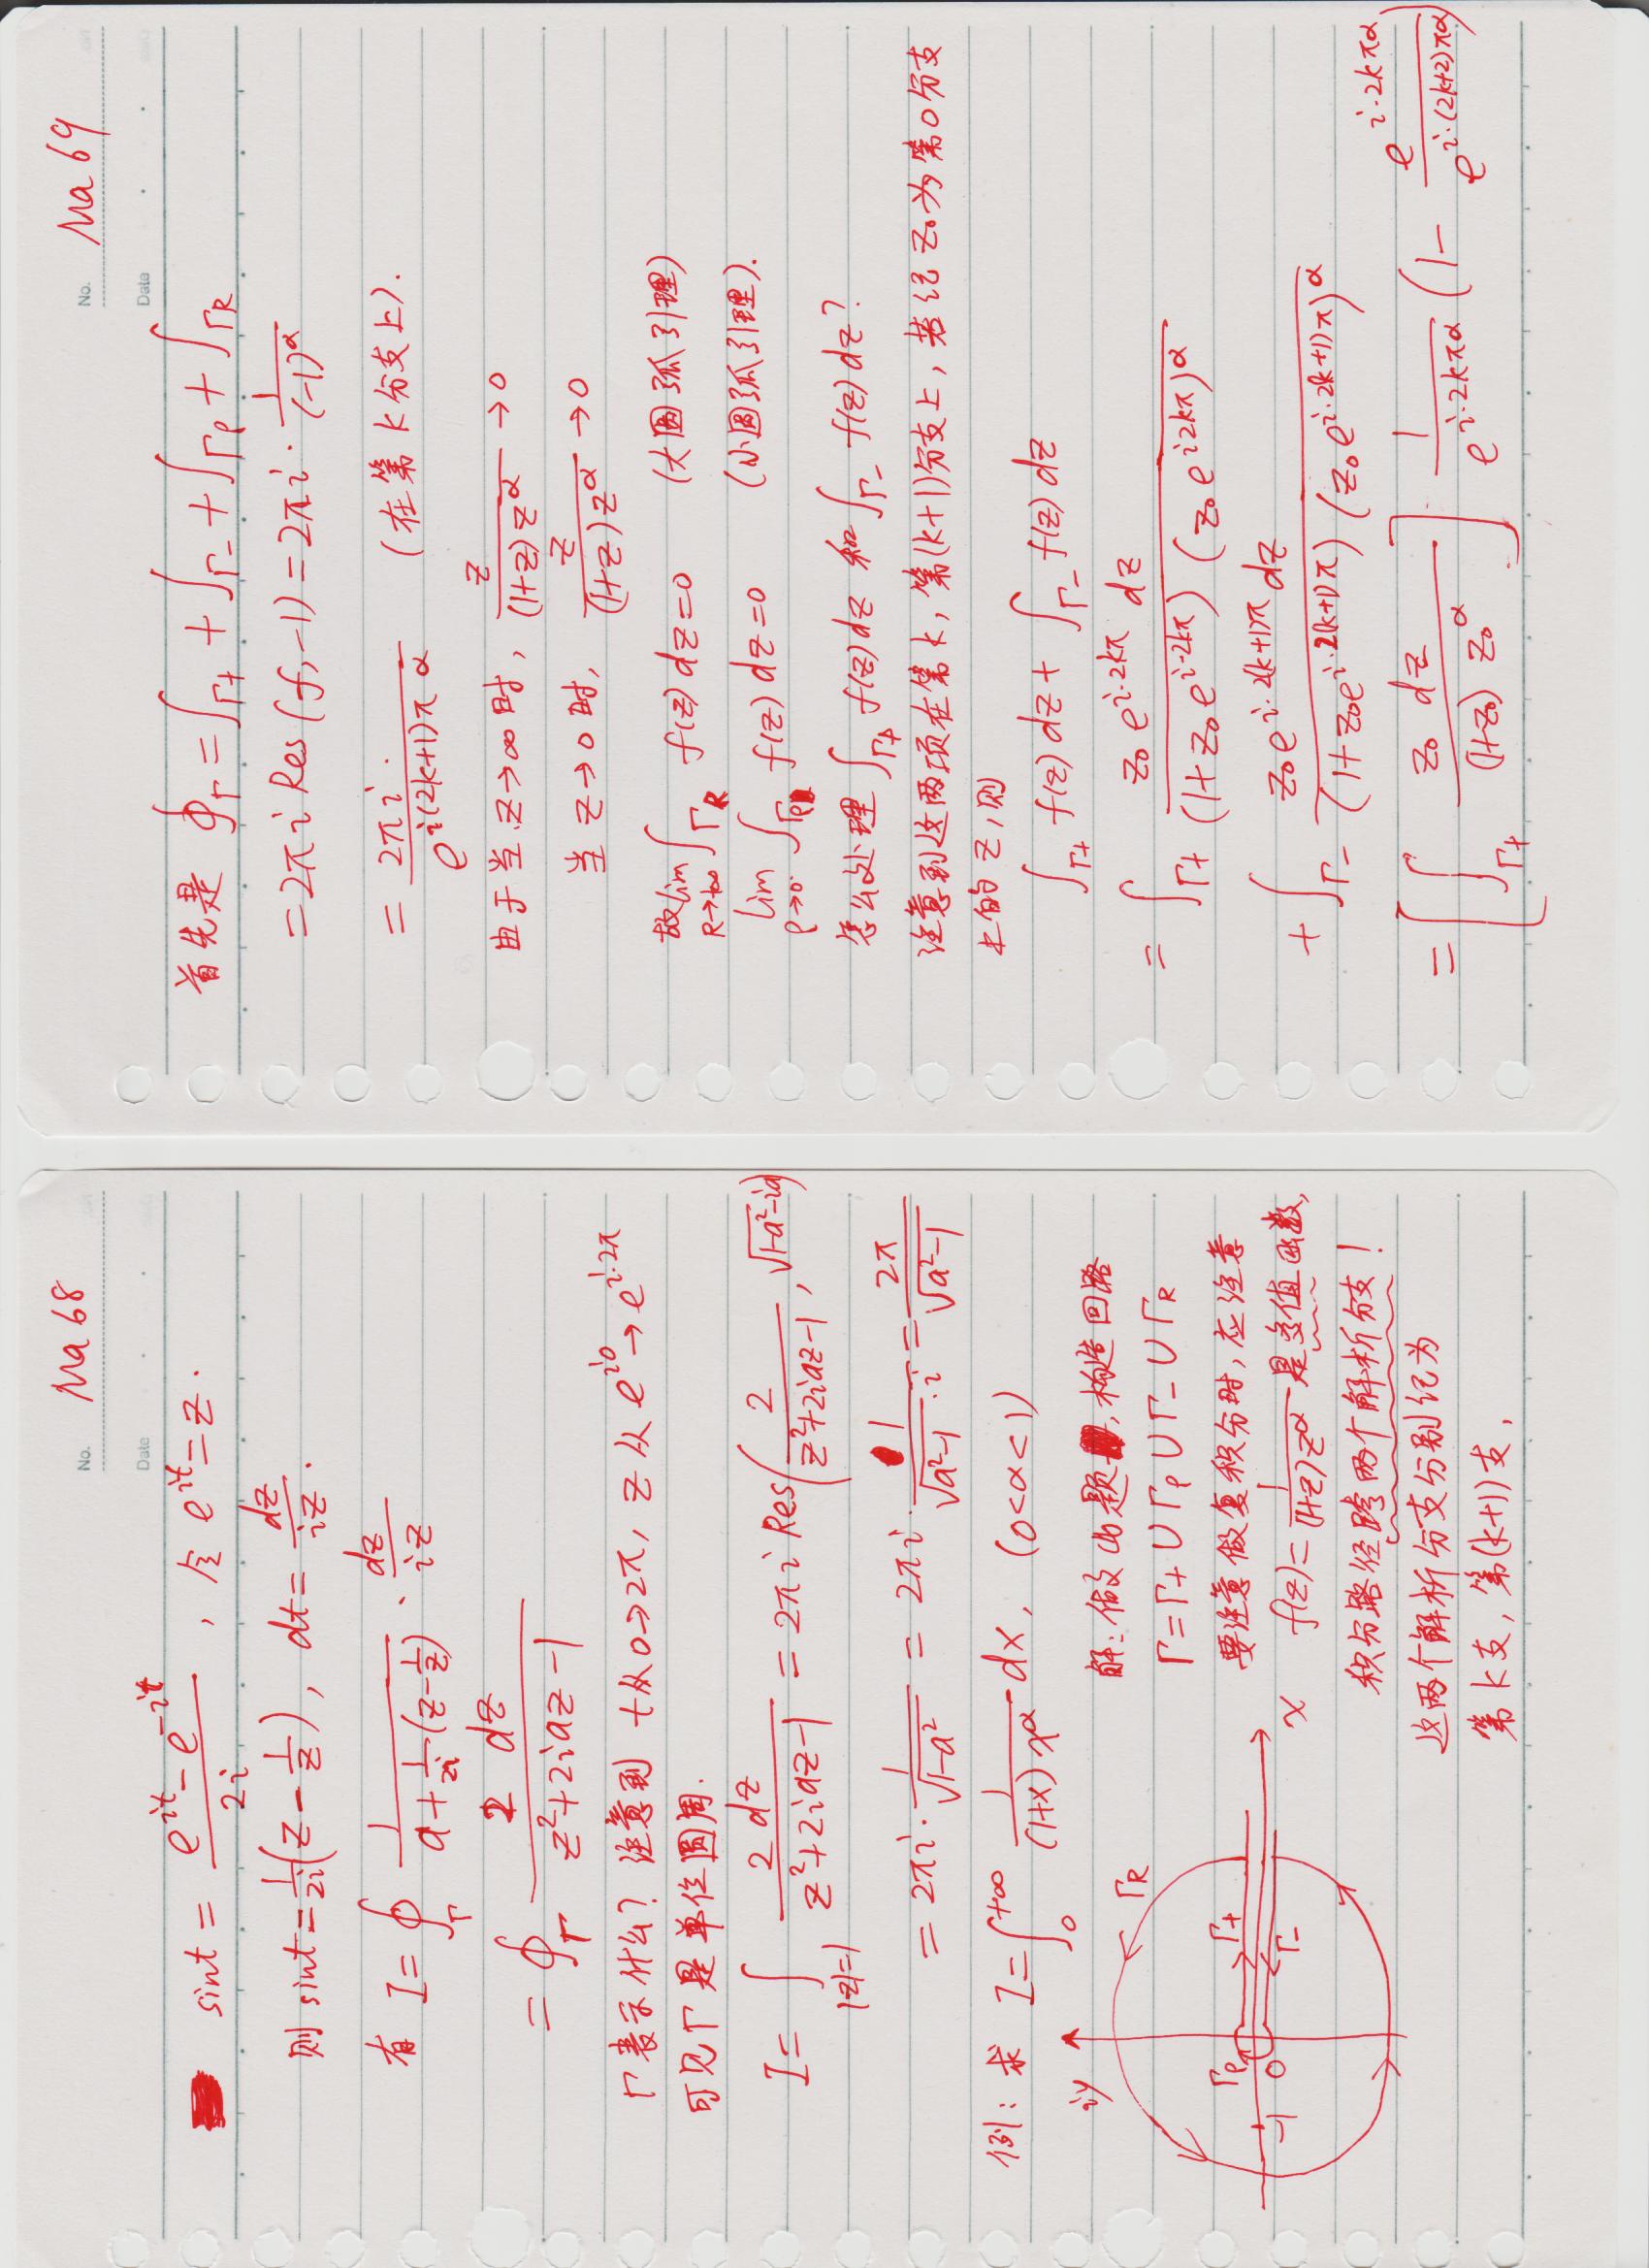 No. Ma 68
Date
sint = (e^{it} - e^{-it}) / 2i , 令 e^{it} = z .
则 sint = 1/2i (z - 1/z) , dt = dz/iz .
有 I = ∮_Γ 1/(a + 1/2i (z - 1/z)) · dz/iz
= ∮_Γ 2 dz/(z² + 2iaz - 1)
Γ表示什么? 注意到 t从0→2π, z从 e^{i0} → e^{i·2π}
可见Γ是单位圆周.
I = ∫_{|z|=1} 2 dz/(z² + 2iaz - 1) = 2πi Res(2/(z² + 2iaz - 1), √(1-a²) - ia)
= 2πi · 1/√(1-a²) = 2πi · 1/(√(a²-1) · i) = 2π/√(a²-1)
例: 求 I = ∫_0^{+∞} 1/((1+x) x^α) dx, (0<α<1)
iy
Γ_R
Γ_ρ
Γ+
-1
0
Γ-
x
解: 做此题, 构造回路
Γ = Γ+ ∪ Γ_ρ ∪ Γ- ∪ Γ_R
要注意做复积分时, 应注意
f(z) = 1/((1+z) z^α) 是多值函数,
积分路径跨两个解析分支!
这两个解析分支分别记为
第k支, 第(k+1)支,
No. Ma 69
Date
首先是 ∮_Γ = ∫_{Γ+} + ∫_{Γ-} + ∫_{Γρ} + ∫_{ΓR}
= 2πi Res(f, -1) = 2πi · 1/(-1)^α
= 2πi · / e^{i(2k+1)πα} (在第k分支上).
由于当z→∞时, z/((1+z) z^α) → 0
当z→0时, z/((1+z) z^α) → 0
故 lim_{R→+∞} ∫_{ΓR} f(z) dz = 0 (大圆弧引理)
lim_{ρ→0} ∫_{Γρ} f(z) dz = 0 (小圆弧引理).
怎么处理 ∫_{Γ+} f(z) dz 和 ∫_{Γ-} f(z) dz?
注意到这两项在第k, 第(k+1)分支上, 若记 z₀ 为第0分支
上的 z, 则
∫_{Γ+} f(z) dz + ∫_{Γ-} f(z) dz
= ∫_{Γ+} z₀ e^{i·2kπ} dz / ((1 + z₀ e^{i·2kπ}) (z₀ e^{i2kπ})^α)
+ ∫_{Γ-} z₀ e^{i·2(k+1)π} dz / ((1 + z₀ e^{i·2(k+1)π}) (z₀ e^{i·2(k+1)π})^α)
= [∫_{Γ+} z₀ dz/((1+z₀) z₀^α)] · 1/e^{i·2kπα} (1 - e^{i·2kπα}/e^{i·(2k+2)πα})